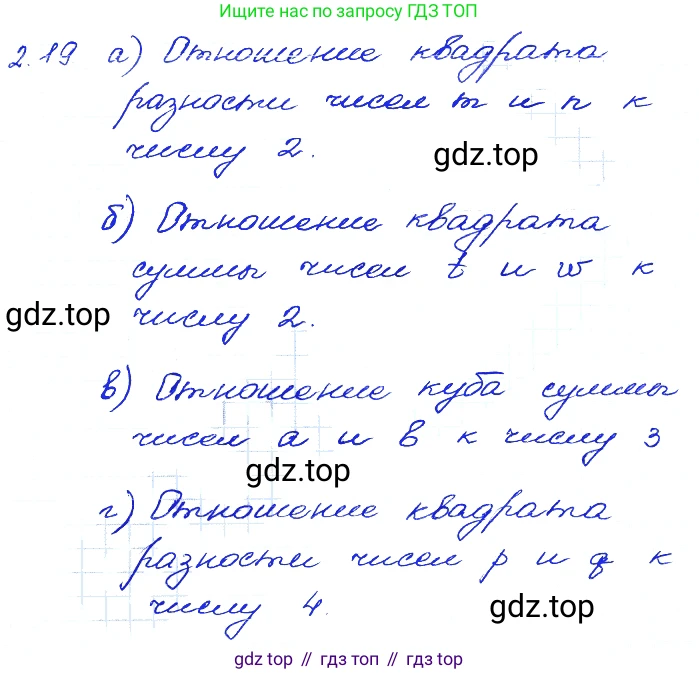 Ищите нас по запросу ГДЗ ТОП
2.19 а) Отношение квадрата
разности чисел m и n к
числу 2.
gdz.top
б) Отношение квадрата
суммы чисел t и w к
gdz.top
числу 2.
в) Отношение куба суммы
чисел a и b к числу 3
gdz.top
г) Отношение квадрата
разности чисел p и q к
числу 4.
gdz.top
gdz.top // гдз топ // гдз.топ